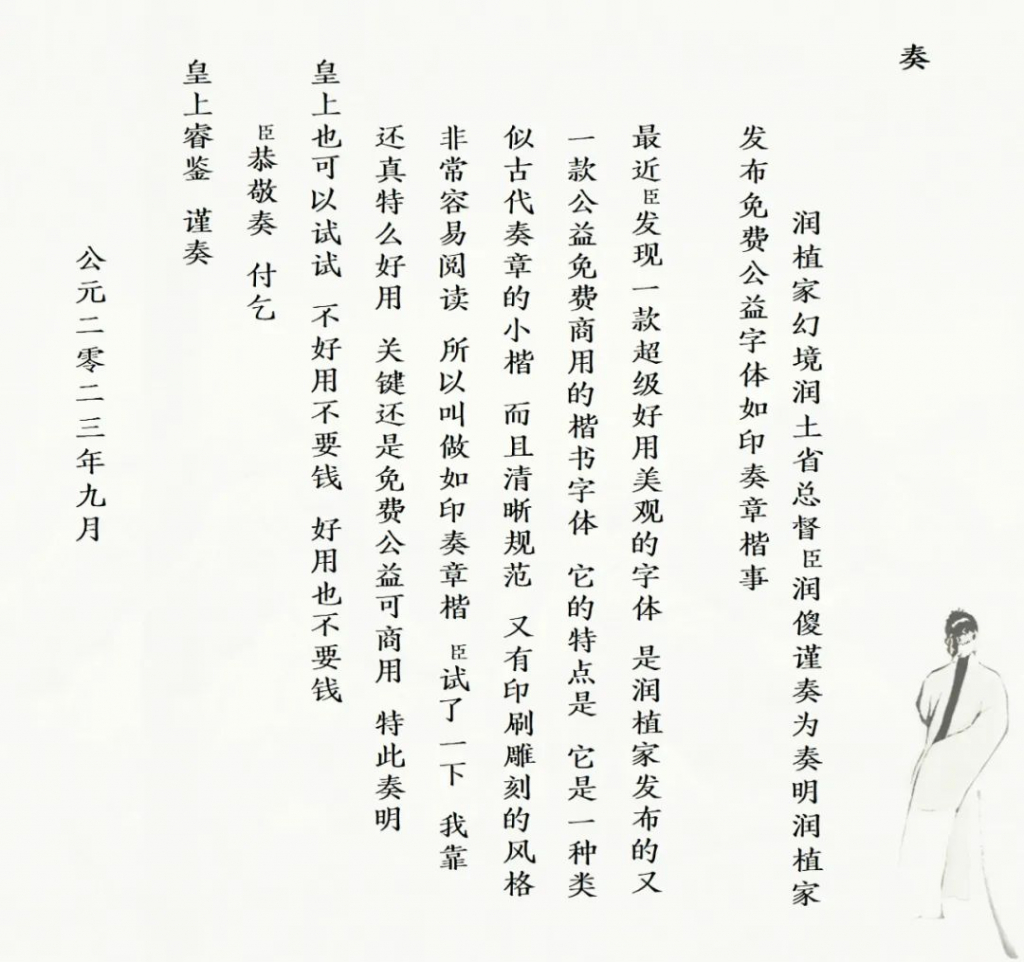 奏
润植家幻境润土省总督臣润傻谨奏为奏明润植家
发布免费公益字体如印奏章楷事
最近臣发现一款超级好用美观的字体 是润植家发布的又
一款公益免费商用的楷书字体 它的特点是 它是一种类
似古代奏章的小楷 而且清晰规范 又有印刷雕刻的风格
非常容易阅读 所以叫做如印奏章楷 臣试了一下 我靠
还真特么好用 关键还是免费公益可商用 特此奏明
皇上也可以试试 不好用不要钱 好用也不要钱
臣恭敬奏 付乞
皇上睿鉴 谨奏
公元二零二三年九月